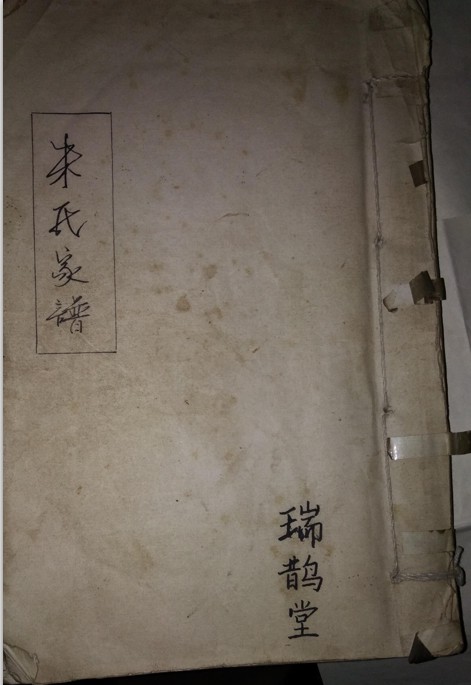 朱氏家譜
瑞鹊堂